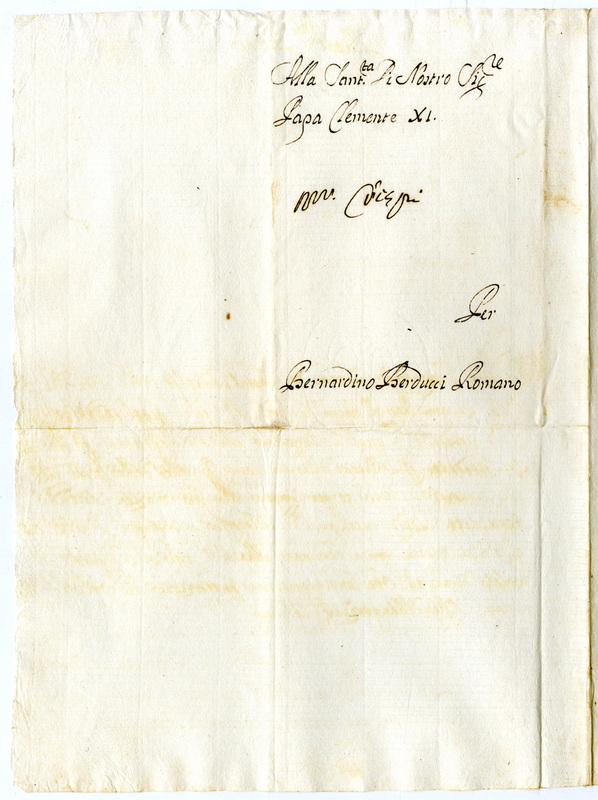 Alla Sant.ta Di Nostro Sig.re
Papa Clemente XI.
Crespi
Per
Bernardino Berducci Romano